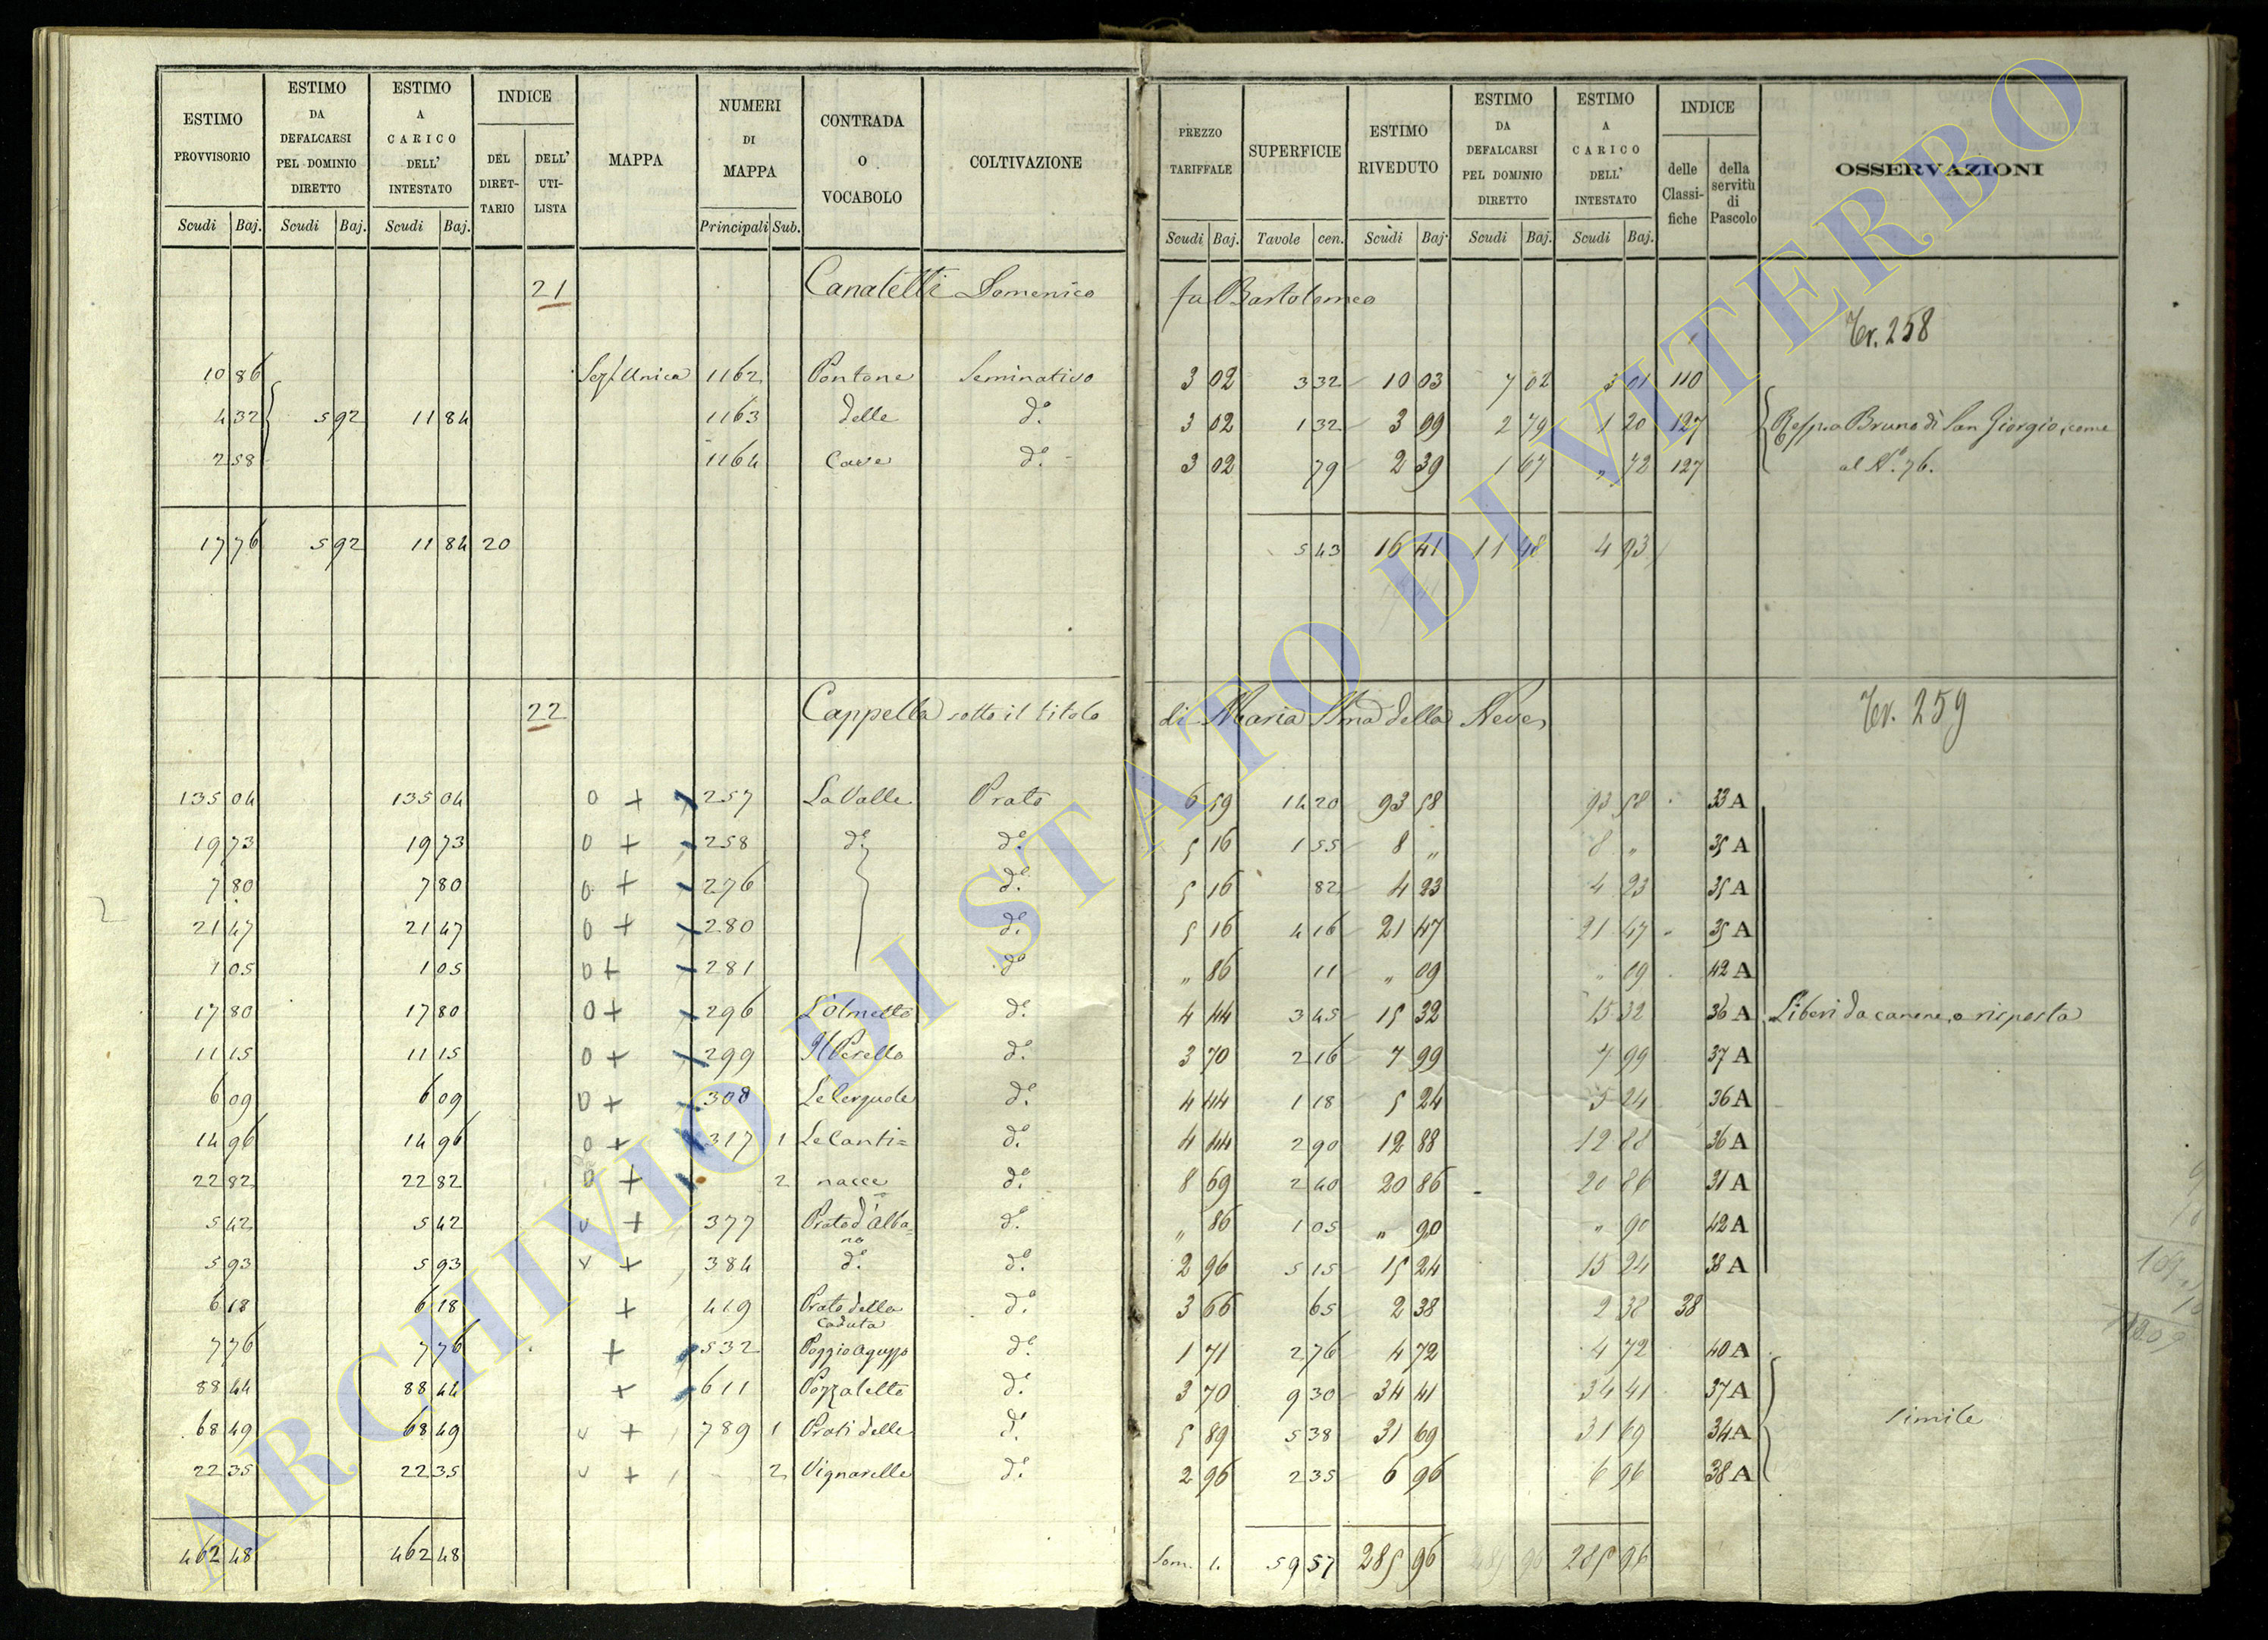 ESTIMO PROVVISORIO Scudi Baj. | ESTIMO DA DEFALCARSI PEL DOMINIO DIRETTO Scudi Baj. | ESTIMO A CARICO DELL' INTESTATO Scudi Baj. | INDICE DEL DIRET-TARIO | DELL' UTI-LISTA | MAPPA | NUMERI DI MAPPA Principali Sub. | CONTRADA O VOCABOLO | COLTIVAZIONE | PREZZO TARIFFALE Scudi Baj. | SUPERFICIE Tavole cen. | ESTIMO RIVEDUTO Scudi Baj. | ESTIMO DA DEFALCARSI PEL DOMINIO DIRETTO Scudi Baj. | ESTIMO A CARICO DELL' INTESTATO Scudi Baj. | INDICE delle Classi-fiche | della servitù di Pascolo | OSSERVAZIONI
21 Canatelli Domenico fu Bartolomeo
Tr. 258
10 86 Sez. Unica 1162 Pontone Seminativo 3 02 3 32 10 03 7 02 3 01 110
4 32 5 92 11 84 1163 delle d.o 3 02 1 32 3 99 2 79 1 20 127 Bruno di San Giorgio, come
2 58 1164 Cave d.o 3 02 79 2 39 1 67 „ 72 127 al N.o 76.
17 76 5 92 11 84 20 5 43 16 41 11 48 4 93
22 Cappella sotto il titolo di Maria SSma della Neve
Tr. 259
135 04 135 04 0 + 257 La Valle Prato 6 59 14 20 93 58 93 58 33 A
19 73 19 73 0 + 258 d.o d.o 5 16 1 55 8 „ 8 „ 35 A
7 80 7 80 0 + 276 d.o 5 16 82 4 23 4 23 35 A
21 47 21 47 0 + 280 d.o 5 16 4 16 21 47 21 47 35 A
1 05 1 05 0 + 281 d.o „ 86 11 „ 09 „ 09 42 A
17 80 17 80 0 + 296 L'Olmetto d.o 4 44 3 45 15 32 15 32 36 A Liberi da canone, o risposta
11 15 11 15 0 + 299 Il Perello d.o 3 70 2 16 7 99 7 99 37 A
6 09 6 09 0 + 308 Le Cerquole d.o 4 44 1 18 5 24 5 24 36 A
14 96 14 96 0 + 317 1 Le Canti= d.o 4 44 2 90 12 88 12 88 36 A
22 82 22 82 0 + 2 nacce d.o 8 69 2 40 20 86 20 86 31 A
5 42 5 42 v + 377 Prato d'Alba= no d.o „ 86 1 05 „ 90 „ 90 42 A
5 93 5 93 v + 384 d.o d.o 2 96 5 15 15 24 15 24 38 A
6 18 6 18 + 419 Prato della Caduta d.o 3 66 65 2 38 2 38 38
7 76 7 76 + 532 Poggio Aguzzo d.o 1 71 2 76 4 72 4 72 40 A
88 44 88 44 + 611 Pozzaletto d.o 3 70 9 30 34 41 34 41 37 A
68 49 68 49 v + 789 1 Prati delle d.o 5 89 5 38 31 69 31 69 34 A simile
22 35 22 35 v + 2 Vignarelle d.o 2 96 2 35 6 96 6 96 38 A
462 48 462 48 Som. 59 57 285 96 285 96
2
ARCHIVIO DI STATO DI VITERBO